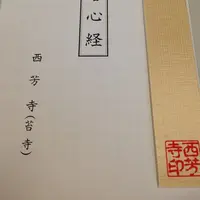 心経
西芳寺(苔寺)
西芳
寺印